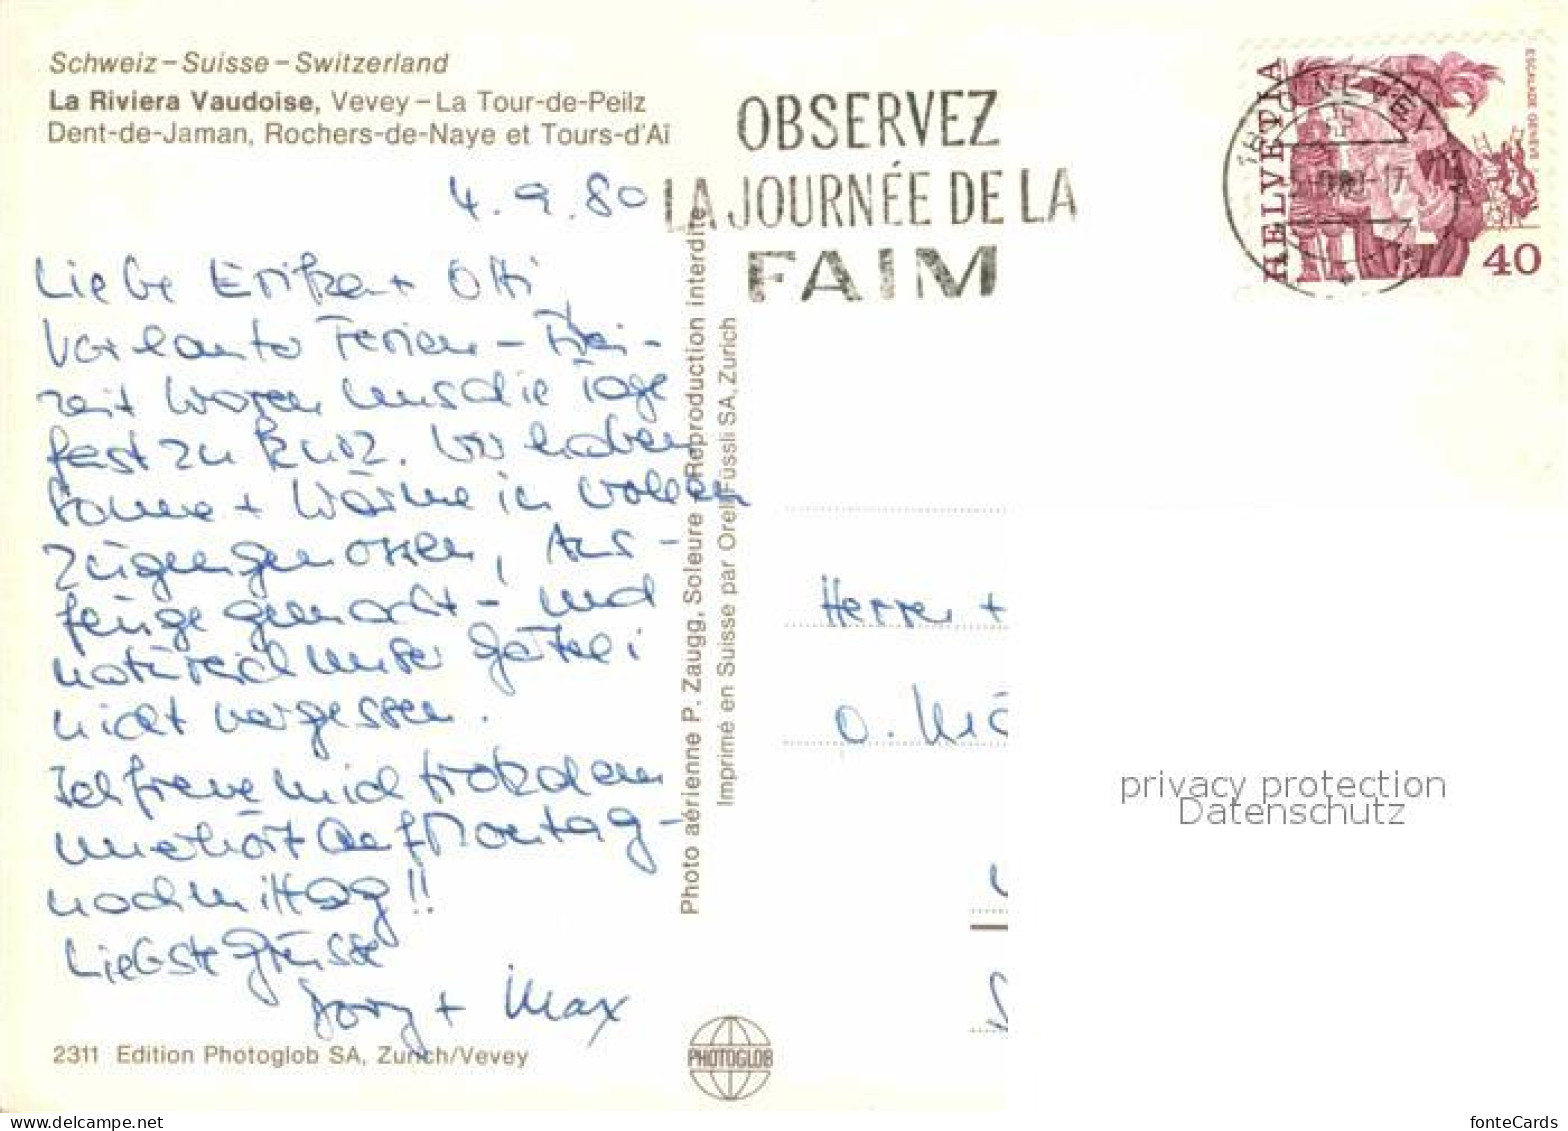 Schweiz – Suisse – Switzerland
La Riviera Vaudoise, Vevey – La Tour-de-Peilz
Dent-de-Jaman, Rochers-de-Naye et Tours-d'Aï
4.9.80
Liebe Erika + Otti
Vor lauter Ferien – Frei-
zeit waren uns die Tage
fast zu kurz. Wir haben
Sonne + Wärme in vollen
Zügen genossen, Aus-
flüge gemacht – und
natürlich unser Gärtli
nicht vergessen.
Ich freue mich trotzdem
unerhört auf Montag-
nachmittag!!
Liebste Grüsse
+ Max
2311 Edition Photoglob SA, Zurich/Vevey
Photo aérienne P. Zaugg, Soleure Reproduction interdite
Imprimé en Suisse par Orell Füssli SA, Zurich
PHOTOGLOB
OBSERVEZ
LA JOURNÉE DE LA
FAIM
HELVETIA
ESCALADE GENÈVE
40
1800 VEVEY
Herrn +
O.
privacy protection
Datenschutz
www.delcampe.net
fonteCards